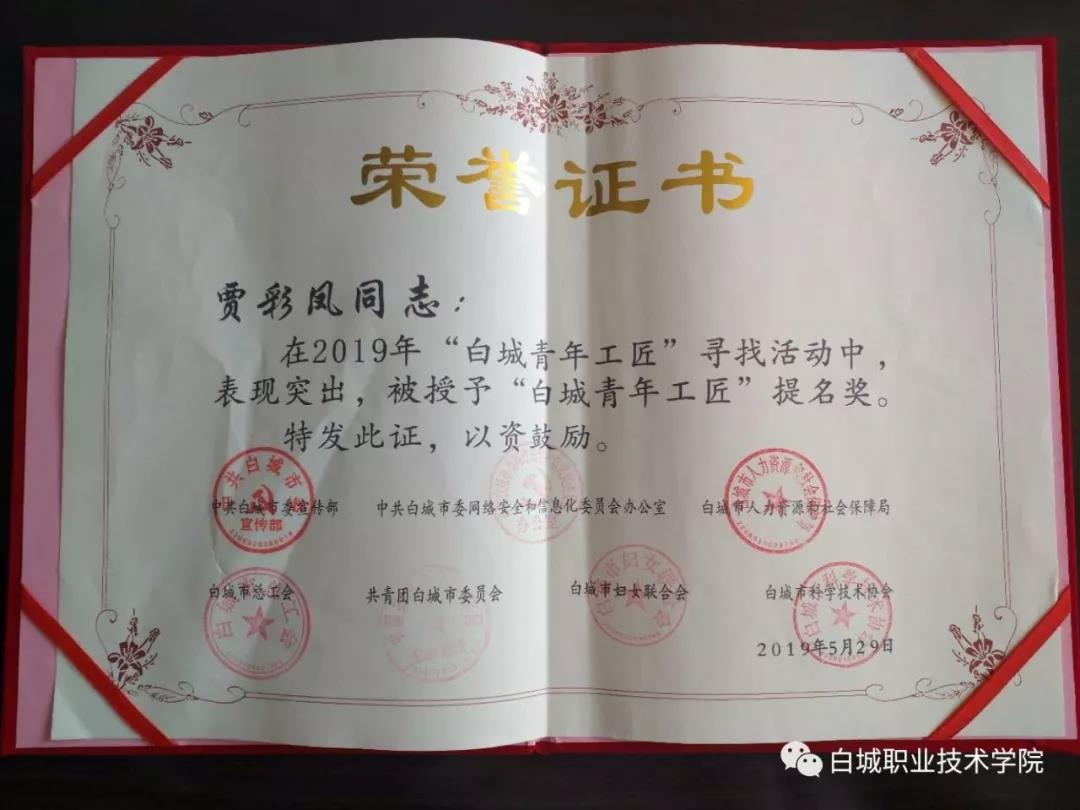 荣誉证书
贾彩凤同志：
在2019年“白城青年工匠”寻找活动中，
表现突出，被授予“白城青年工匠”提名奖。
特发此证，以资鼓励。
中共白城市委宣传部 中共白城市委网络安全和信息化委员会办公室 白城市人力资源和社会保障局
宣传部
办公室
白城市总工会 共青团白城市委员会 白城市妇女联合会 白城市科学技术协会
2019年5月29日
白城职业技术学院